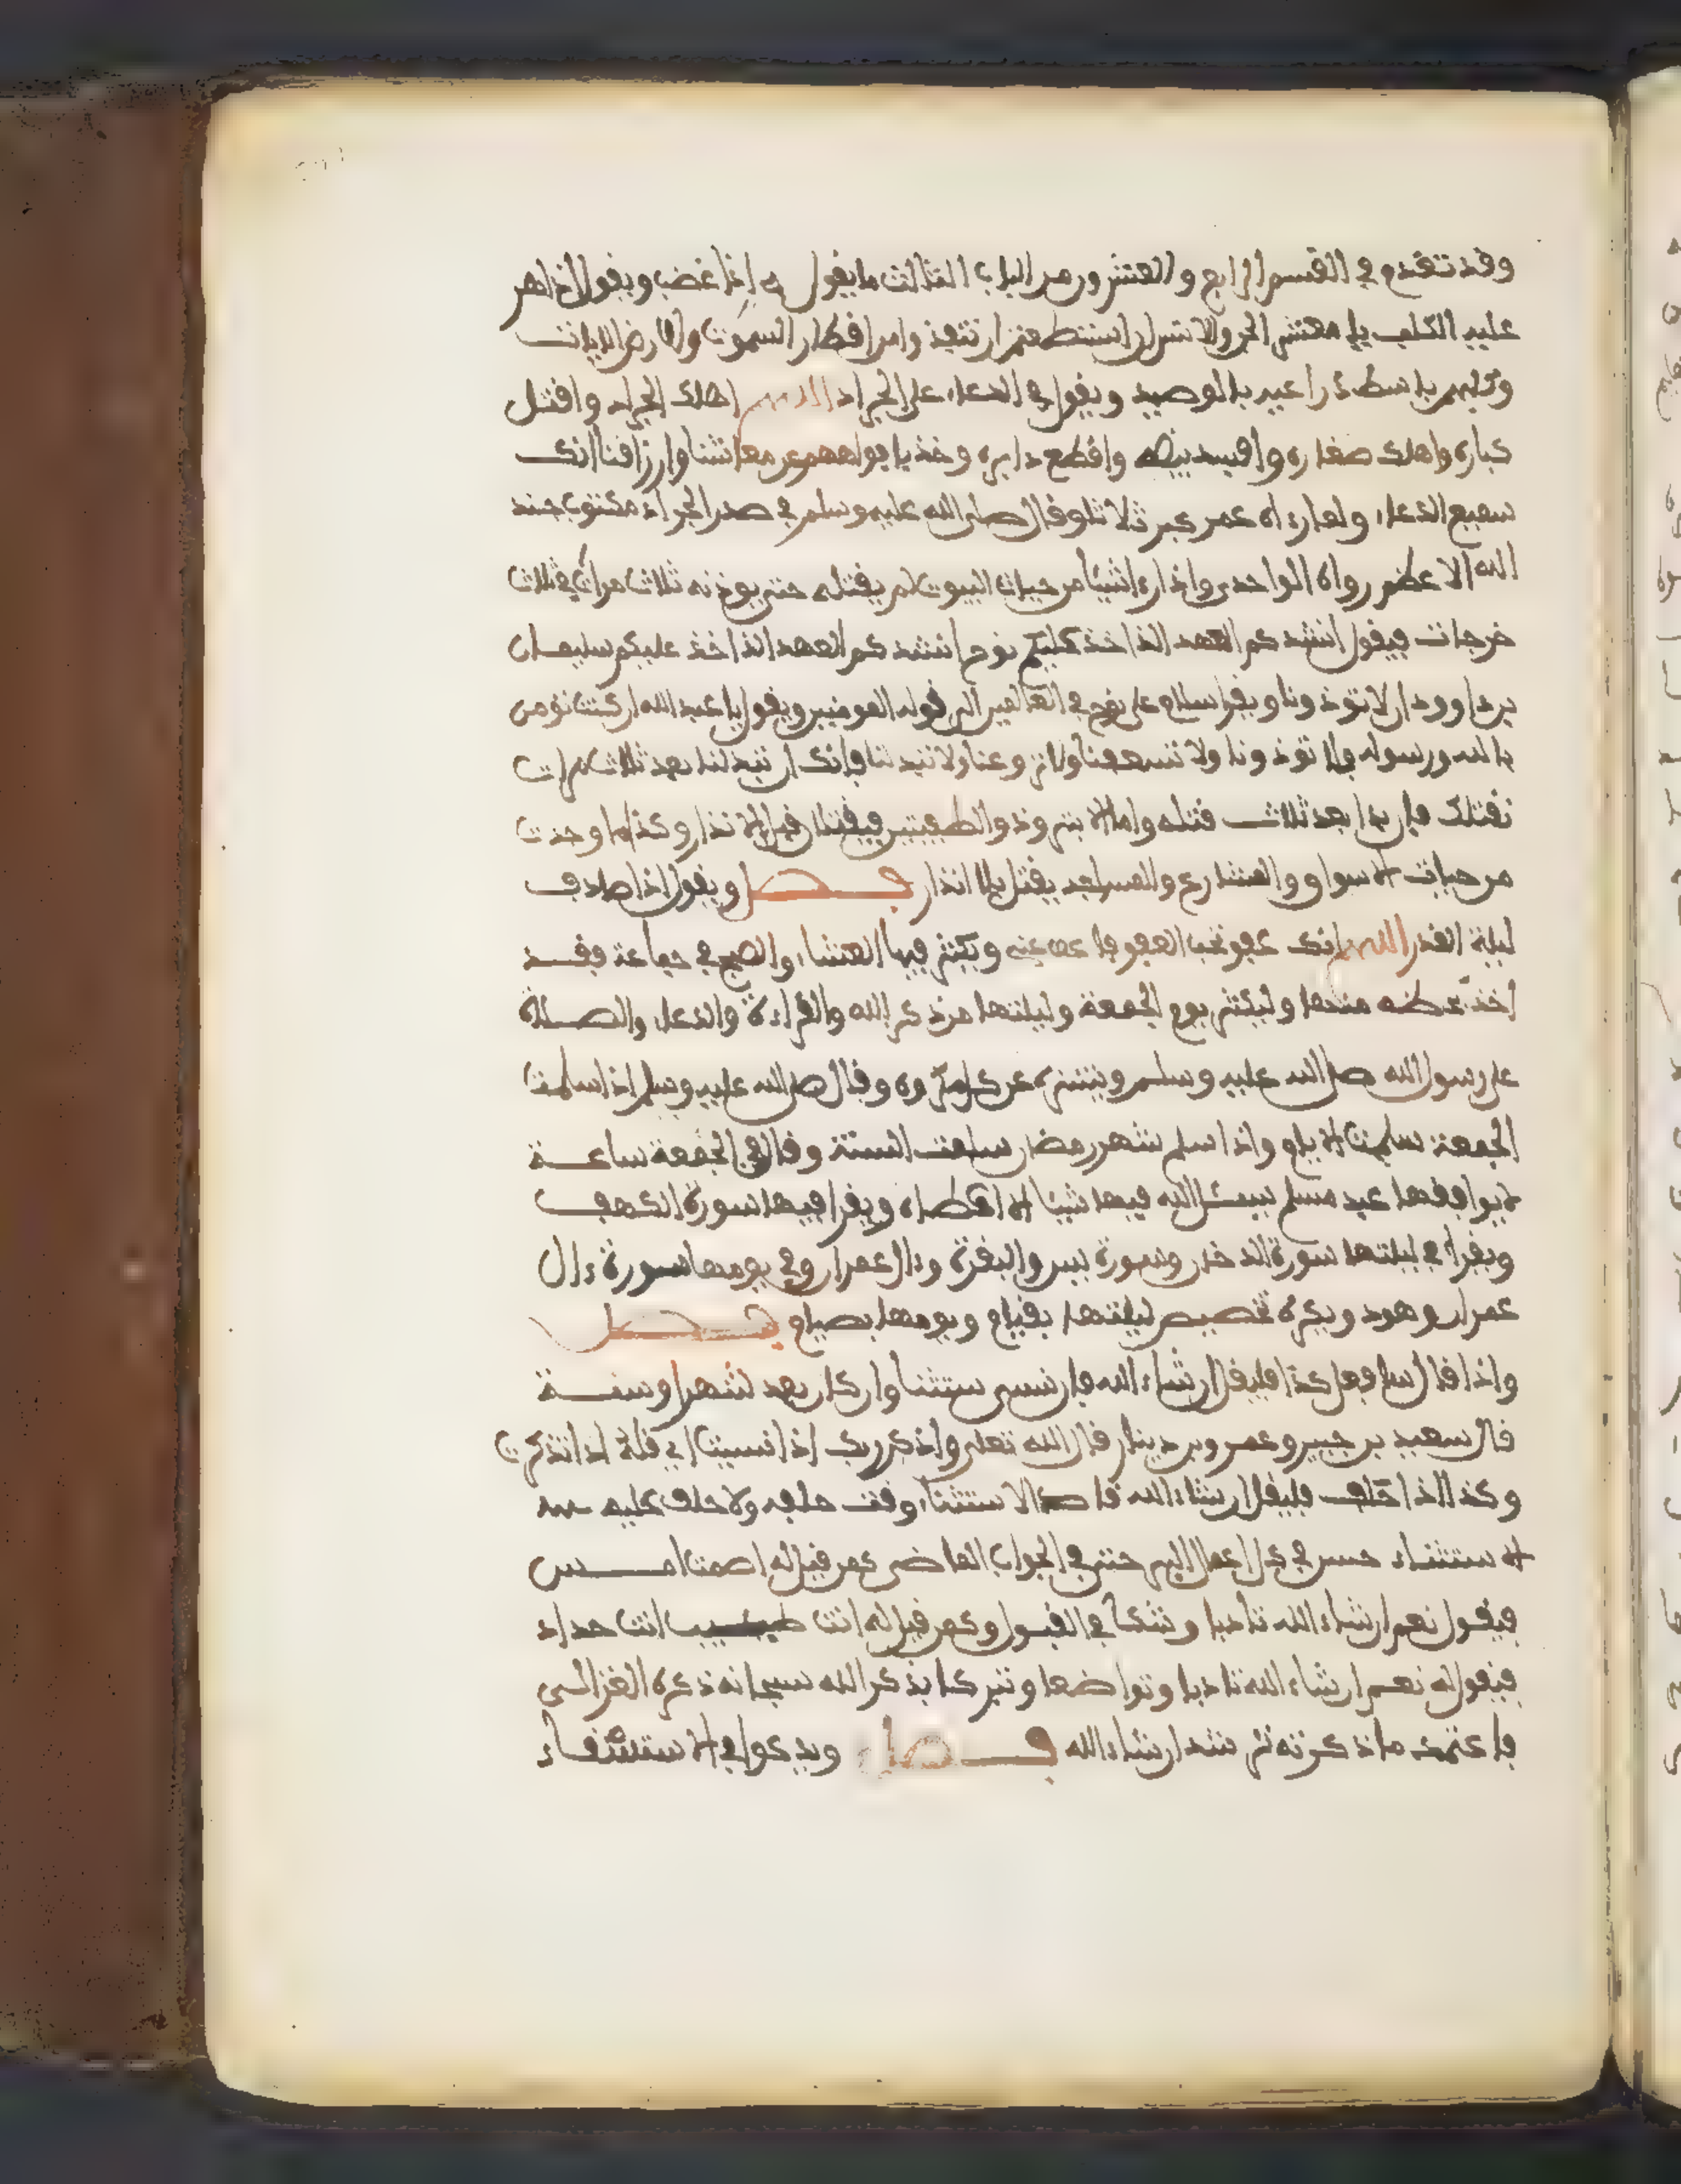 وقد تقدم في القسم الرابع والعشرون من الباب الثالث ما يقوله إذا غضب ويقول إذا هر
عليه الكلب يا معشر الجن والانس إن استطعتم أن تنفذوا من اقطار السموت والارض الايات
وكلبهم باسط ذراعيه بالوصيد ويقول في الدعاء على الجراد اللهم اهلك الجراد واقتل
كباره واهلك صغاره وافسد بيضه واقطع دابره وخذ بافواههم عن معاشنا وارزاقنا انك
سميع الدعاء ولما رءاه عمر كبر ثلاثا وقال صلى الله عليه وسلم في صدر الجراد مكتوب جند
الله الاعظم رواه الواحدي واذا رءا شيئا من حيات البيوت لم يقتله حتى يوذنه ثلاث مرات في ثلاث
خرجات فيقول انشدكم العهد الذ اخذ عليكم نوح انشدكم العهد الذ اخذ عليكم سليمان
بن داوود ان لا توذونا ويقرا سلام على نوح في العالمين الى قوله المومنين ويقول يا عبد الله ان كنت تومن
بالله ورسوله فلا توذونا ولا تسعفنا ولا تروعنا ولا تبد لنا فإنك ان تبد لنا بعد ثلاث مرات
نقتلك فإن بدا بعد ثلاث قتله واما الابتر وذو الطفيتين فيقتلان قبل الانذار وكذا ما وجدت
من حيات الاسواق والشارع والمساجد يقتل بلا انذار فصل ويقول اذا صادف
ليلة القدر اللهم انك عفو تحب العفو فاعف عني ويكثر فيها العشاء والصبح في جماعة فقد
اخذ بحظه منها وليكثر يوم الجمعة وليلتها من ذكر الله والقراءة والدعاء والصلاة
على رسول الله صلى الله عليه وسلم ويتنزه عن كل مكروه وقال صلى الله عليه وسلم اذا سلمت
الجمعة سلمت الايام واذا سلم شهر رمضان سلمت السنة وقال في الجمعة ساعة
لا يوافقها عبد مسلم يسئل الله فيها شيئا الا اعطاه ويقرا فيها سورة الكهف
ويقرا في ليلتها سورة الدخان وسورة يس والبقرة وءال عمران وفي يومها سورة ءال
عمران وهود ويكره تخصيص ليلتها بقيام ويومها بصيام فصل
واذا قال سافعل كذا فليقل ان شاء الله فإن نسي استثنا وان كان بعد شهر او سنة
قال سعيد بن جبير وعمرو بن دينار قال الله تعلى واذكر ربك اذا نسيت اي قله اذا تذكرت
وكذا اذا حلف فليقل ان شاء الله قاصدا الاستثناء وقت حلفه ولا حلف عليه
الاستثناء حسن في كل اعمال البر حتى في الجواب الماضي كمن قيل له اصمت امس
فيقول نعم ان شاء الله تادبا وشكا في القبول وكمن قيل له انت طبيب انت حداد
فيقول نعم ان شاء الله تادبا وتواضعا وتبركا بذكر الله سبحانه ذكره الغزالي
فاعتمد ما ذكرته ترشد ان شاء الله فصل ويدعوا في الاستسقاء